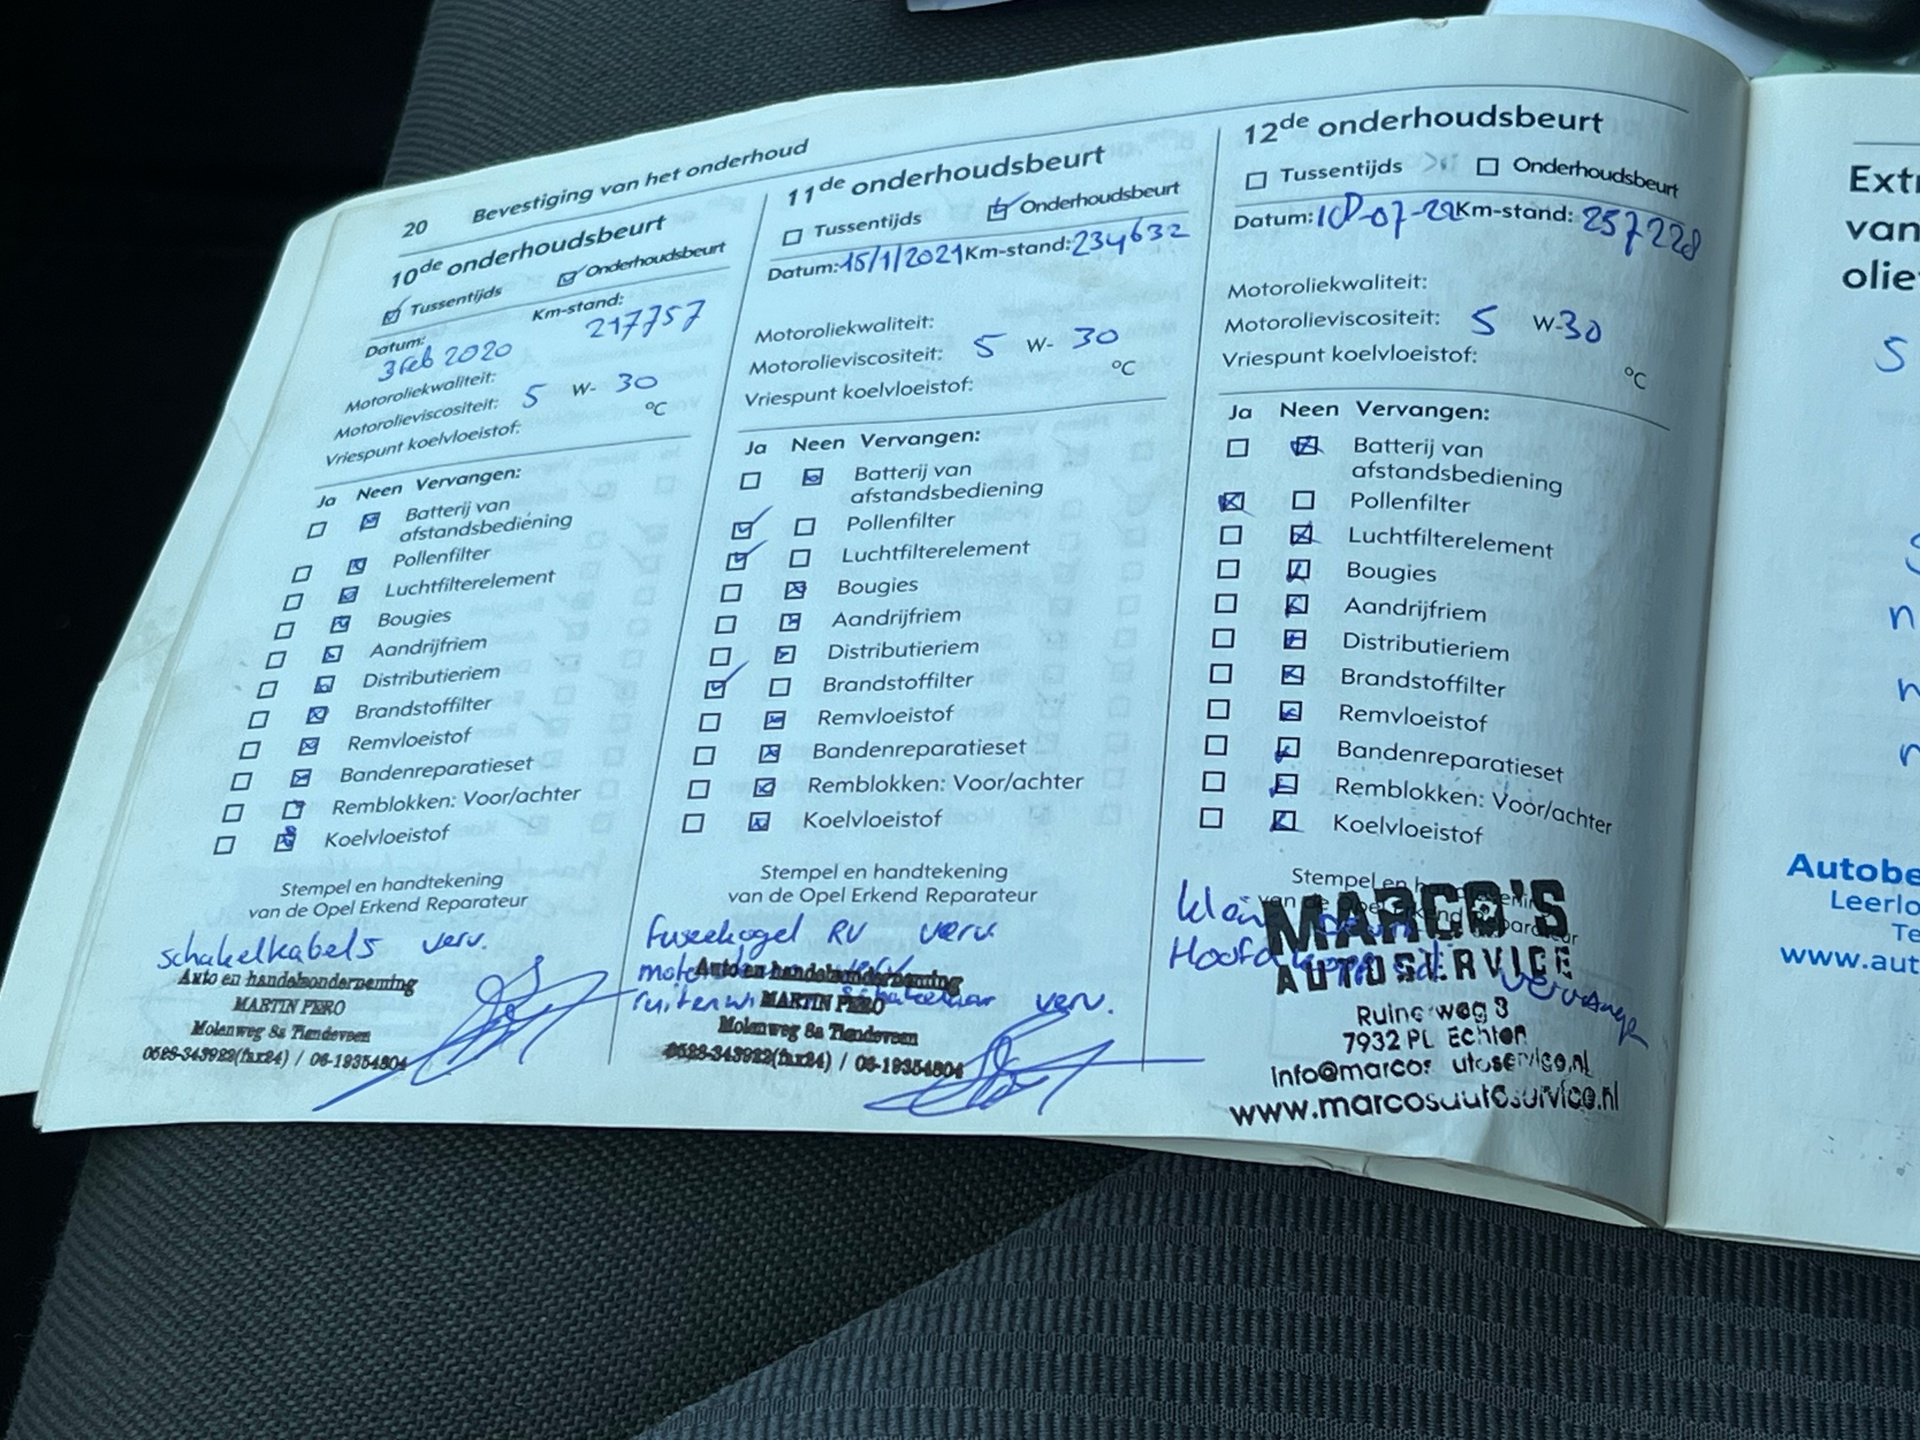 20 Bevestiging van het onderhoud
10de onderhoudsbeurt
Tussentijds Onderhoudsbeurt
Datum: Km-stand:
3 feb 2020 217757
Motoroliekwaliteit:
Motorolieviscositeit: 5 W- 30
Vriespunt koelvloeistof: °C
Ja Neen Vervangen:
Batterij van
afstandsbediening
Pollenfilter
Luchtfilterelement
Bougies
Aandrijfriem
Distributieriem
Brandstoffilter
Remvloeistof
Bandenreparatieset
Remblokken: Voor/achter
Koelvloeistof
Stempel en handtekening
van de Opel Erkend Reparateur
schakelkabels verv.
Auto en handelsonderneming
MARTIN FERO
Molenweg 8a Tiendeveen
0528-343922(fax24) / 06-19354804
11de onderhoudsbeurt
Tussentijds Onderhoudsbeurt
Datum: 15/1/2021 Km-stand: 234632
Motoroliekwaliteit:
Motorolieviscositeit: 5 W- 30
Vriespunt koelvloeistof: °C
Ja Neen Vervangen:
Batterij van
afstandsbediening
Pollenfilter
Luchtfilterelement
Bougies
Aandrijfriem
Distributieriem
Brandstoffilter
Remvloeistof
Bandenreparatieset
Remblokken: Voor/achter
Koelvloeistof
Stempel en handtekening
van de Opel Erkend Reparateur
fuseekogel RV verv.
Auto en handelsonderneming
verv.
MARTIN FERO
Molenweg 8a Tiendeveen
0528-343922(fax24) / 06-19354804
12de onderhoudsbeurt
Tussentijds Onderhoudsbeurt
Datum: Km-stand: 257228
Motoroliekwaliteit:
Motorolieviscositeit: 5 W-30
Vriespunt koelvloeistof: °C
Ja Neen Vervangen:
Batterij van
afstandsbediening
Pollenfilter
Luchtfilterelement
Bougies
Aandrijfriem
Distributieriem
Brandstoffilter
Remvloeistof
Bandenreparatieset
Remblokken: Voor/achter
Koelvloeistof
Stempel en
klein
MARCO'S
AUTOSERVICE
vervangen
Ruinerweg 3
7932 PL Echten
info@marcosautoservice.nl
www.marcosautoservice.nl
Extr
van
olie
5
n
Autobe
Leerlo
Te
www.aut